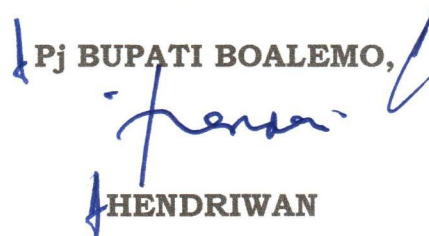 Pj BUPATI BOALEMO,
HENDRIWAN